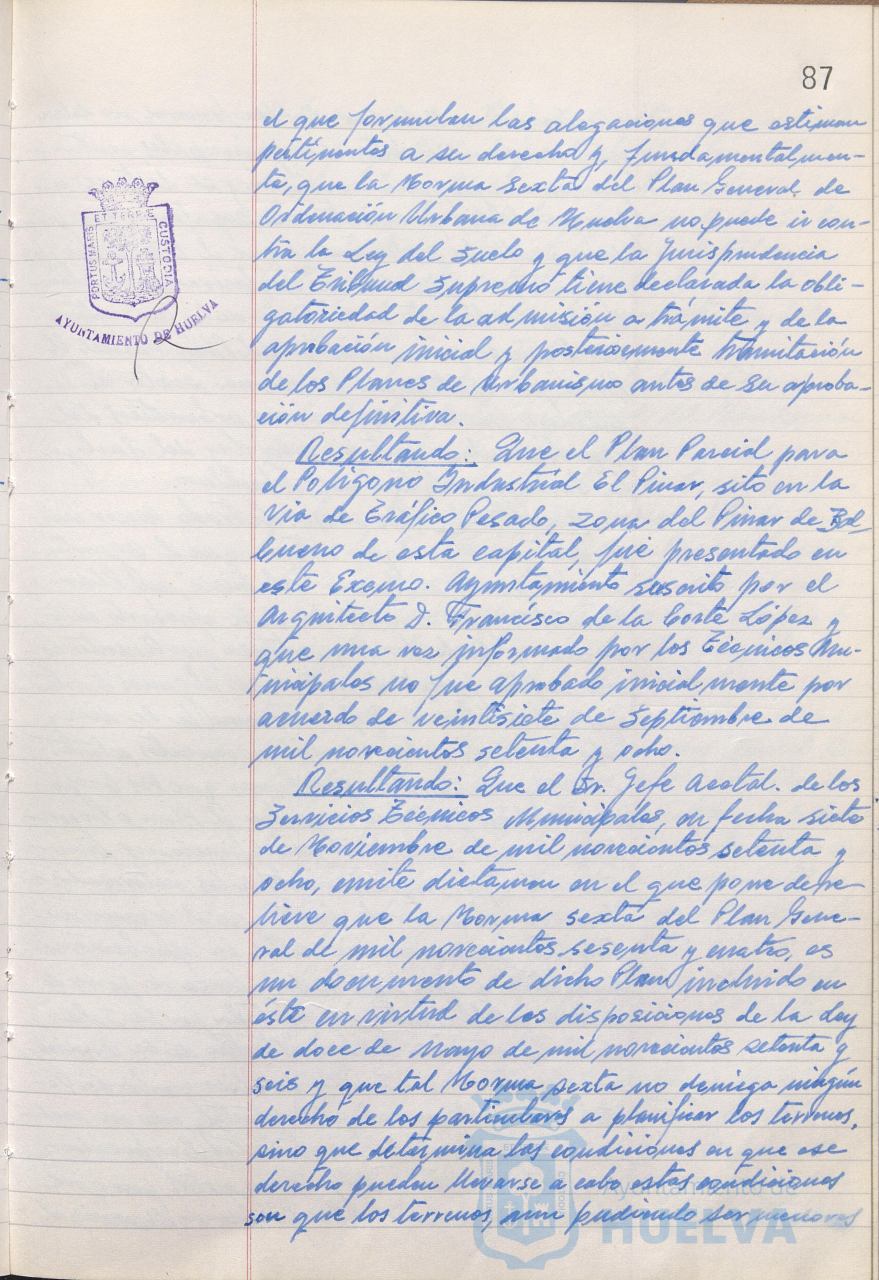 87
el que formulan las alegaciones que estiman
pertinentes a su derecho y, fundamentalmen-
te, que la Norma sexta del Plan General de
Ordenación Urbana de Huelva no puede ir con-
tra la Ley del Suelo y que la Jurisprudencia
del Tribunal Supremo tiene declarada la obli-
gatoriedad de la admisión a trámite y de la
aprobación inicial y posteriormente tramitación
de los Planes de Urbanismo antes de su aproba-
ción definitiva.
Resultando: Que el Plan Parcial para
el Polígono Industrial El Pinar, sito en la
Vía de Tráfico Pesado, zona del Pinar de Bal-
bueno de esta capital, fué presentado en
este Excmo. Ayuntamiento suscrito por el
Arquitecto D. Francisco de la Corte López y
que una vez informado por los Técnicos Mu-
nicipales no fue aprobado inicialmente por
acuerdo de veintisiete de Septiembre de
mil novecientos setenta y ocho.
Resultando: Que el Sr. Jefe Acctal. de los
Servicios Técnicos Municipales, en fecha siete
de Noviembre de mil novecientos setenta y
ocho, emite dictamen en el que pone de re-
lieve que la Norma sexta del Plan Gene-
ral de mil novecientos sesenta y cuatro, es
un documento de dicho Plan incluido en
éste en virtud de las disposiciones de la Ley
de doce de Mayo de mil novecientos setenta y
seis y que tal Norma sexta no deniega ningún
derecho de los particulares a planificar los terrenos,
sino que determina las condiciones en que ese
derecho pueden llevarse a cabo estas condiciones
son que los terrenos, aun pudiendo ser menores
PORTUS MARIS ET TERRE CUSTODIA
AYUNTAMIENTO DE HUELVA
Ayuntamiento de
HUELVA